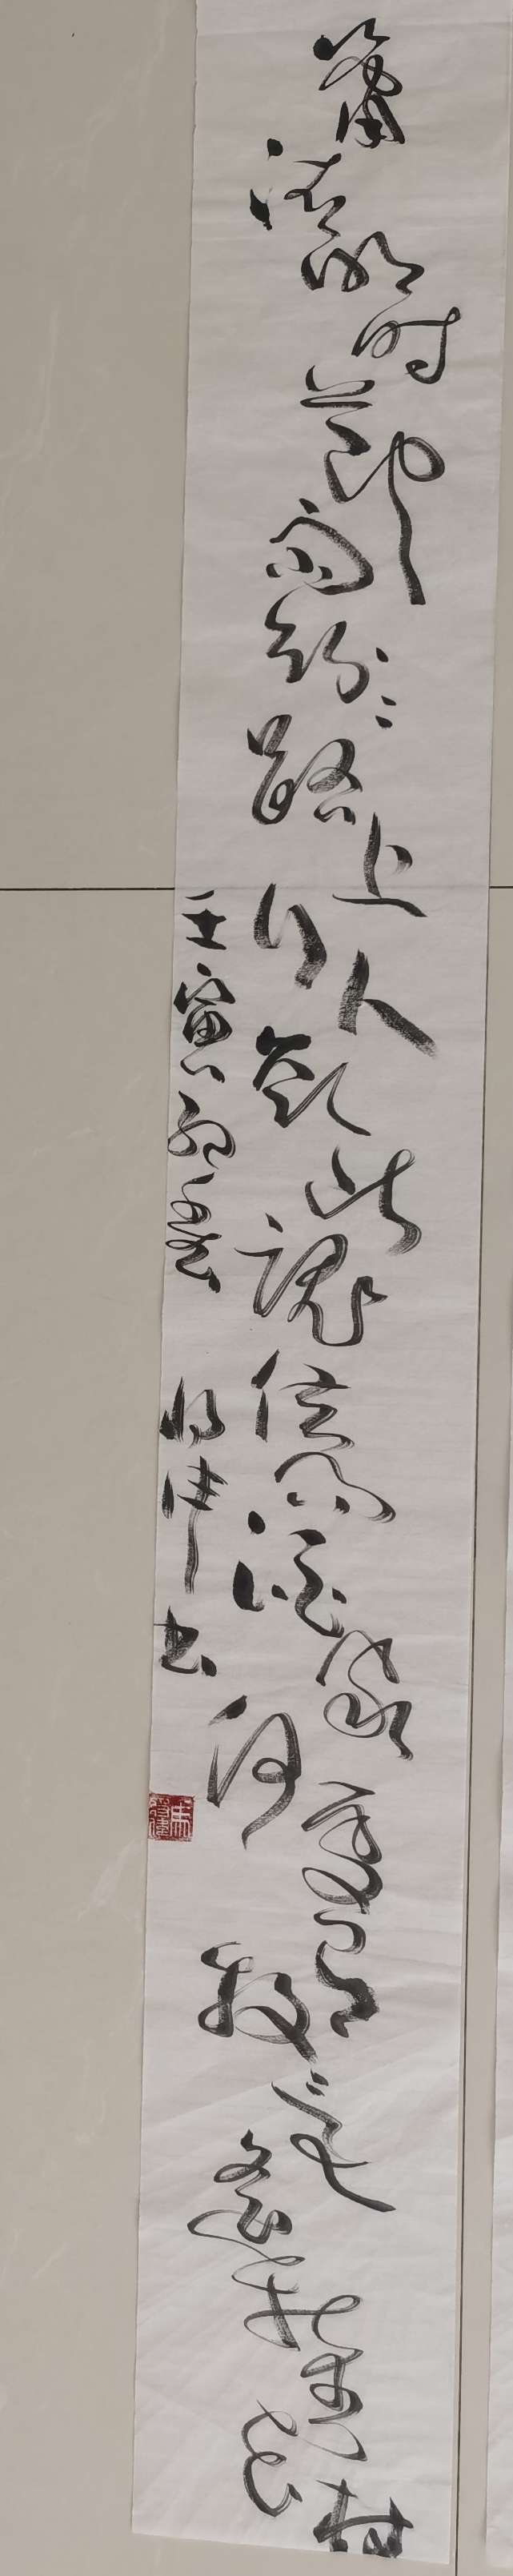 清明时节雨纷纷路上行人欲断魂借问酒家何处有牧童遥指杏花村
壬寅 书